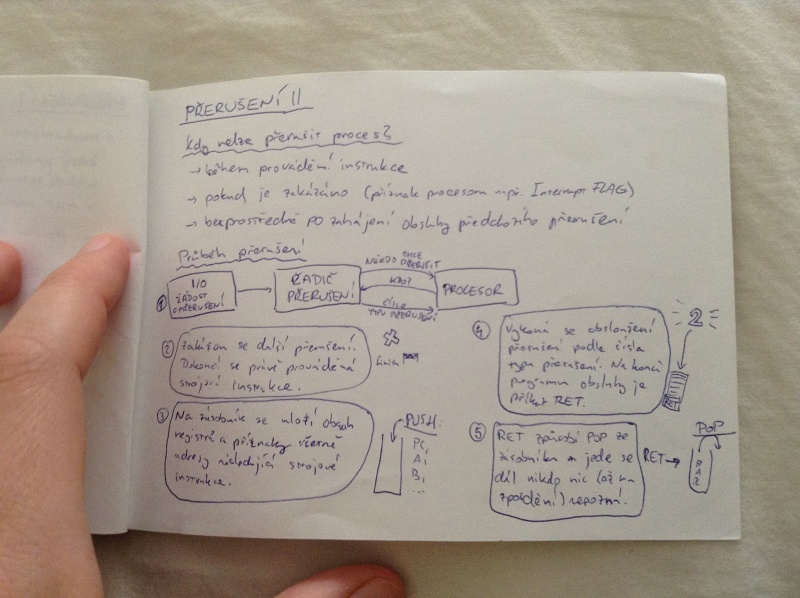 PŘERUŠENÍ II
Kdy nelze přerušit proces?
→ během provádění instrukce
→ pokud je zakázáno (příznak procesoru např. Interrupt FLAG)
→ bezprostředně po zahájení obsluhy předchozího přerušení
Průběh přerušení
1
I/O
ŽÁDOST
O PŘERUŠENÍ
ŘADIČ
PŘERUŠENÍ
NĚKDO CHCE
PŘERUŠIT
KDO?
ČÍSLO
TYPU PŘERUŠENÍ
PROCESOR
2
Zakážou se další přerušení.
Dokončí se právě prováděná
strojová instrukce.
finish
3
Na zásobník se uloží obsah
registrů a příznaky včetně
adresy následující strojové
instrukce.
PUSH:
PC,
A,
B,
...
4
Vykoná se obsloužení
přerušení podle čísla
typu přerušení. Na konci
programu obsluhy je
příkaz RET.
2
RET
5
RET způsobí POP ze
zásobníku a jede se
dál nikdo nic (až na
zpoždění) nepozná.
RET →
POP